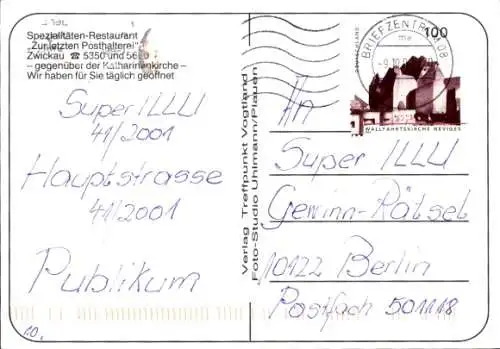 Spezialitäten-Restaurant
"Zur letzten Posthalterei"
Zwickau ☎ 5350 und
– gegenüber der Katharinenkirche –
Wir haben für Sie täglich geöffnet
Super ILLU
41/2001
Hauptstrasse
41/2001
Publikum
10.
Verlag Treffpunkt Vogtland
Foto-Studio Uhlmann/Plauen
BRIEFZENTRUM 08
DEUTSCHLAND
100
WALLFAHRTSKIRCHE NEVIGES
An
Super ILLU
Gewinn-Rätsel
10122 Berlin
Postfach 501118